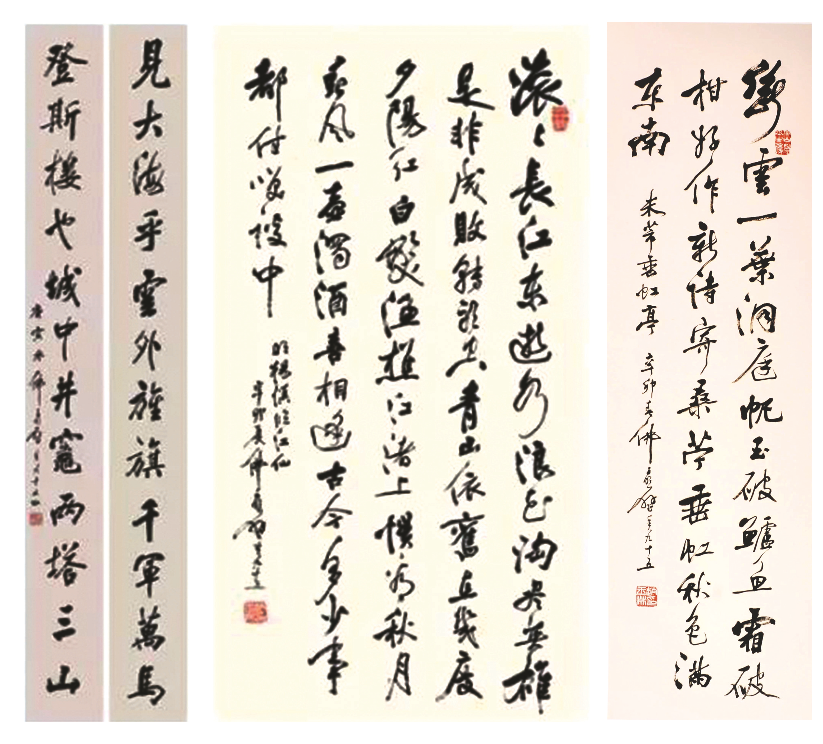 斷雲一葉洞庭帆玉破鱸魚霜破
柑好作新詩寄桑苧垂虹秋色滿
东南
米芾垂虹亭 辛卯春佛 九十五
滚々長江东逝水浪花淘尽英雄
是非成敗转头空青山依舊在幾度
夕陽红白髮渔樵江渚上惯看秋月
春风一壶濁酒喜相逢古今多少事
都付笑谈中
明杨慎临江仙
辛卯夏佛
見大海乎雲外旌旗千軍萬馬
登斯樓也城中井竈兩塔三山
庚寅冬佛